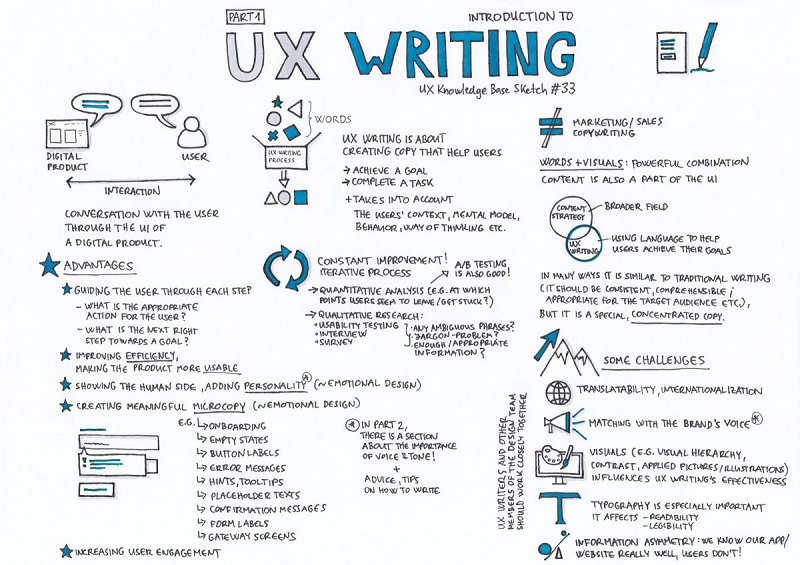 PART 1
INTRODUCTION TO
UX WRITING
UX Knowledge Base Sketch #33
DIGITAL
PRODUCT
USER
INTERACTION
CONVERSATION WITH THE USER
THROUGH THE UI OF
A DIGITAL PRODUCT.
WORDS
UX WRITING
PROCESS
UX WRITING IS ABOUT
CREATING COPY THAT HELP USERS
→ ACHIEVE A GOAL
→ COMPLETE A TASK
+ TAKES INTO ACCOUNT
THE USERS' CONTEXT, MENTAL MODEL,
BEHAVIOR, WAY OF THINKING ETC.
≠ MARKETING/SALES
COPYWRITING
WORDS + VISUALS: POWERFUL COMBINATION
CONTENT IS ALSO A PART OF THE UI
CONTENT
STRATEGY
BROADER FIELD
UX
WRITING
USING LANGUAGE TO HELP
USERS ACHIEVE THEIR GOALS
IN MANY WAYS IT IS SIMILAR TO TRADITIONAL WRITING
(IT SHOULD BE CONSISTENT, COMPREHENSIBLE,
APPROPRIATE FOR THE TARGET AUDIENCE ETC.),
BUT IT IS A SPECIAL, CONCENTRATED COPY.
ADVANTAGES
GUIDING THE USER THROUGH EACH STEP
- WHAT IS THE APPROPRIATE
ACTION FOR THE USER?
- WHAT IS THE NEXT RIGHT
STEP TOWARDS A GOAL?
IMPROVING EFFICIENCY,
MAKING THE PRODUCT MORE USABLE
SHOWING THE HUMAN SIDE, ADDING PERSONALITY* (~EMOTIONAL DESIGN)
CREATING MEANINGFUL MICROCOPY (~EMOTIONAL DESIGN)
E.G. ONBOARDING
EMPTY STATES
BUTTON LABELS
ERROR MESSAGES
HINTS, TOOLTIPS
PLACEHOLDER TEXTS
CONFIRMATION MESSAGES
FORM LABELS
GATEWAY SCREENS
INCREASING USER ENGAGEMENT
CONSTANT IMPROVEMENT!
ITERATIVE PROCESS
A/B TESTING
IS ALSO GOOD!
→ QUANTITATIVE ANALYSIS (E.G. AT WHICH
POINTS USERS SEEM TO LEAVE/GET STUCK?)
→ QUALITATIVE RESEARCH:
+ USABILITY TESTING
+ INTERVIEW
+ SURVEY
· ANY AMBIGUOUS PHRASES?
· JARGON-PROBLEM?
· ENOUGH/APPROPRIATE
INFORMATION?
* IN PART 2,
THERE IS A SECTION
ABOUT THE IMPORTANCE
OF VOICE & TONE!
+
ADVICE, TIPS
ON HOW TO WRITE
UX WRITERS AND OTHER
MEMBERS OF THE DESIGN TEAM
SHOULD WORK CLOSELY TOGETHER
SOME CHALLENGES
TRANSLATABILITY, INTERNATIONALIZATION
MATCHING WITH THE BRAND'S VOICE*
VISUALS (E.G. VISUAL HIERARCHY,
CONTRAST, APPLIED PICTURES/ILLUSTRATIONS)
INFLUENCES UX WRITING'S EFFECTIVENESS
T TYPOGRAPHY IS ESPECIALLY IMPORTANT
IT AFFECTS - READIBILITY
- LEGIBILITY
INFORMATION ASYMMETRY: WE KNOW OUR APP/
WEBSITE REALLY WELL, USERS DON'T!